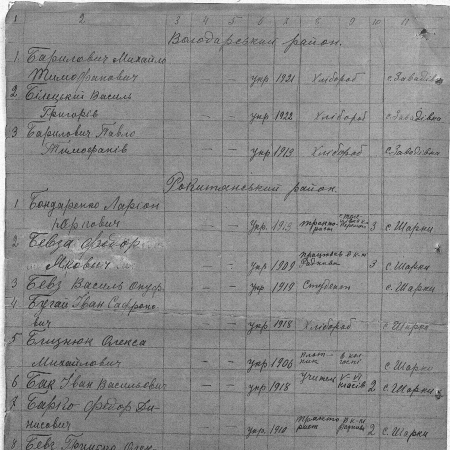 1 2 3 4 5 6 7 8 9 10 11
Володарський район.
1 Барилович Михайло
Тимофанович – – укр 1921 Хлібороб с. Завадівка
2 Білецький Василь
Григорів – – укр 1922 Хлібороб с. Завадівка
3 Барилович Павло
Тимофанів – – укр 1919 Хлібороб с. Завадівка
Рокитянський район.
1 Бондаренко Ларіон
– – укр 3 с. Шарки
2 Бевза Федор
Якович – – укр 1909 3 с. Шарки
3 Бевз Василь – – укр 1919 Студент с. Шарки
4 Бугай Іван Сафроно-
вич – – укр 1918 Хлібороб с. Шарки
5 Олекса
Михайлович – – укр 1906 с. Шарки
6 Бак Іван Васильович – – укр 1918 учитель 2 с. Шарки
7 Федор Де-
нисович – – укр 1910 2 с. Шарки
8 Бевз